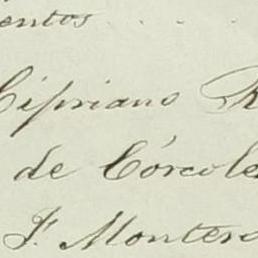 entos . . .
Cipriano R
de Córcole
F. Montero